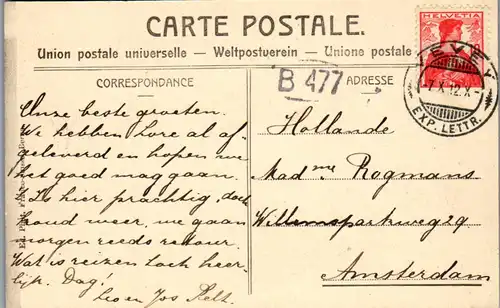 CARTE POSTALE.
Union postale universelle — Weltpostverein — Unione postale
HELVETIA
VEVEY
-7.X.12.X-
EXP. LETTR.
CORRESPONDANCE
B 477
ADRESSE
Onze beste groeten.
We hebben Lore al af-
geleverd en hopen we
het goed mag gaan.
Is hier prachtig, doch
koud weer, we gaan
morgen reeds retour.
Wat is reizen toch heer-
lijk. Dag!
Leo en Jos Pelt.
Hollande
Madme Rogmans
Willemsparkweg 29
Amsterdam